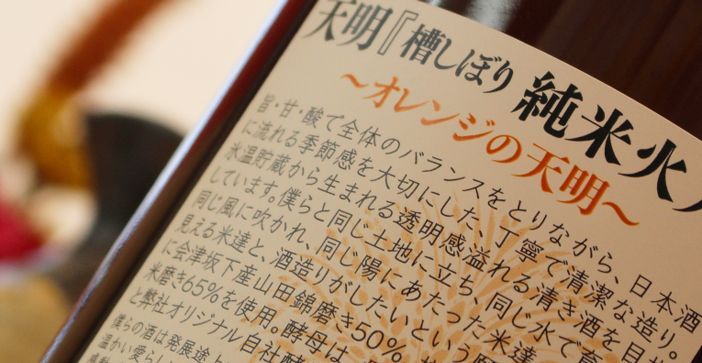 天明『槽しぼり 純米火
～オレンジの天明～
旨・甘・酸で全体のバランスをとりながら、日本酒
に流れる季節感を大切にした、丁寧で清潔な造り
氷温貯蔵から生まれる透明感溢れる清き酒を目
しています。僕らと同じ土地に立ち、同じ水で育
同じ風に吹かれ、同じ陽にあたった米達
見える米達と、酒造りがしたいという
に会津坂下産山田錦磨き50%
米磨き65%を使用。酵母は
と弊社オリジナル自社酵
僕らの酒は発展途上
温かい愛らし